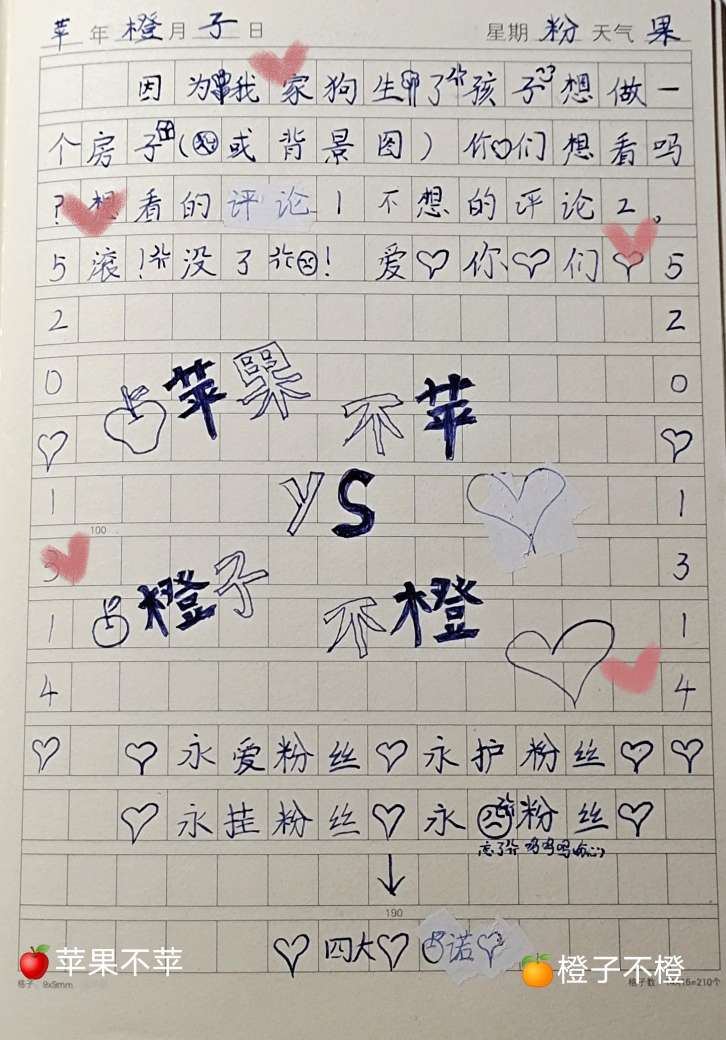 苹年橙月子日 星期粉天气果
因为我家狗生了孩子想做一
个房子(或背景图)你♡们想看吗
?想看的评论1不想的评论2。
5滚!没了!爱♡你♡们♡5
2 2
0 0
苹果不苹
♡ ♡
1 VS 1
100
3 3
橙子不橙
1 1
4 4
♡ ♡永爱粉丝♡永护粉丝♡♡
♡永挂粉丝♡永粉丝♡
↓
190
♡四大♡诺♡
苹果不苹 橙子不橙
格子: 9x9mm